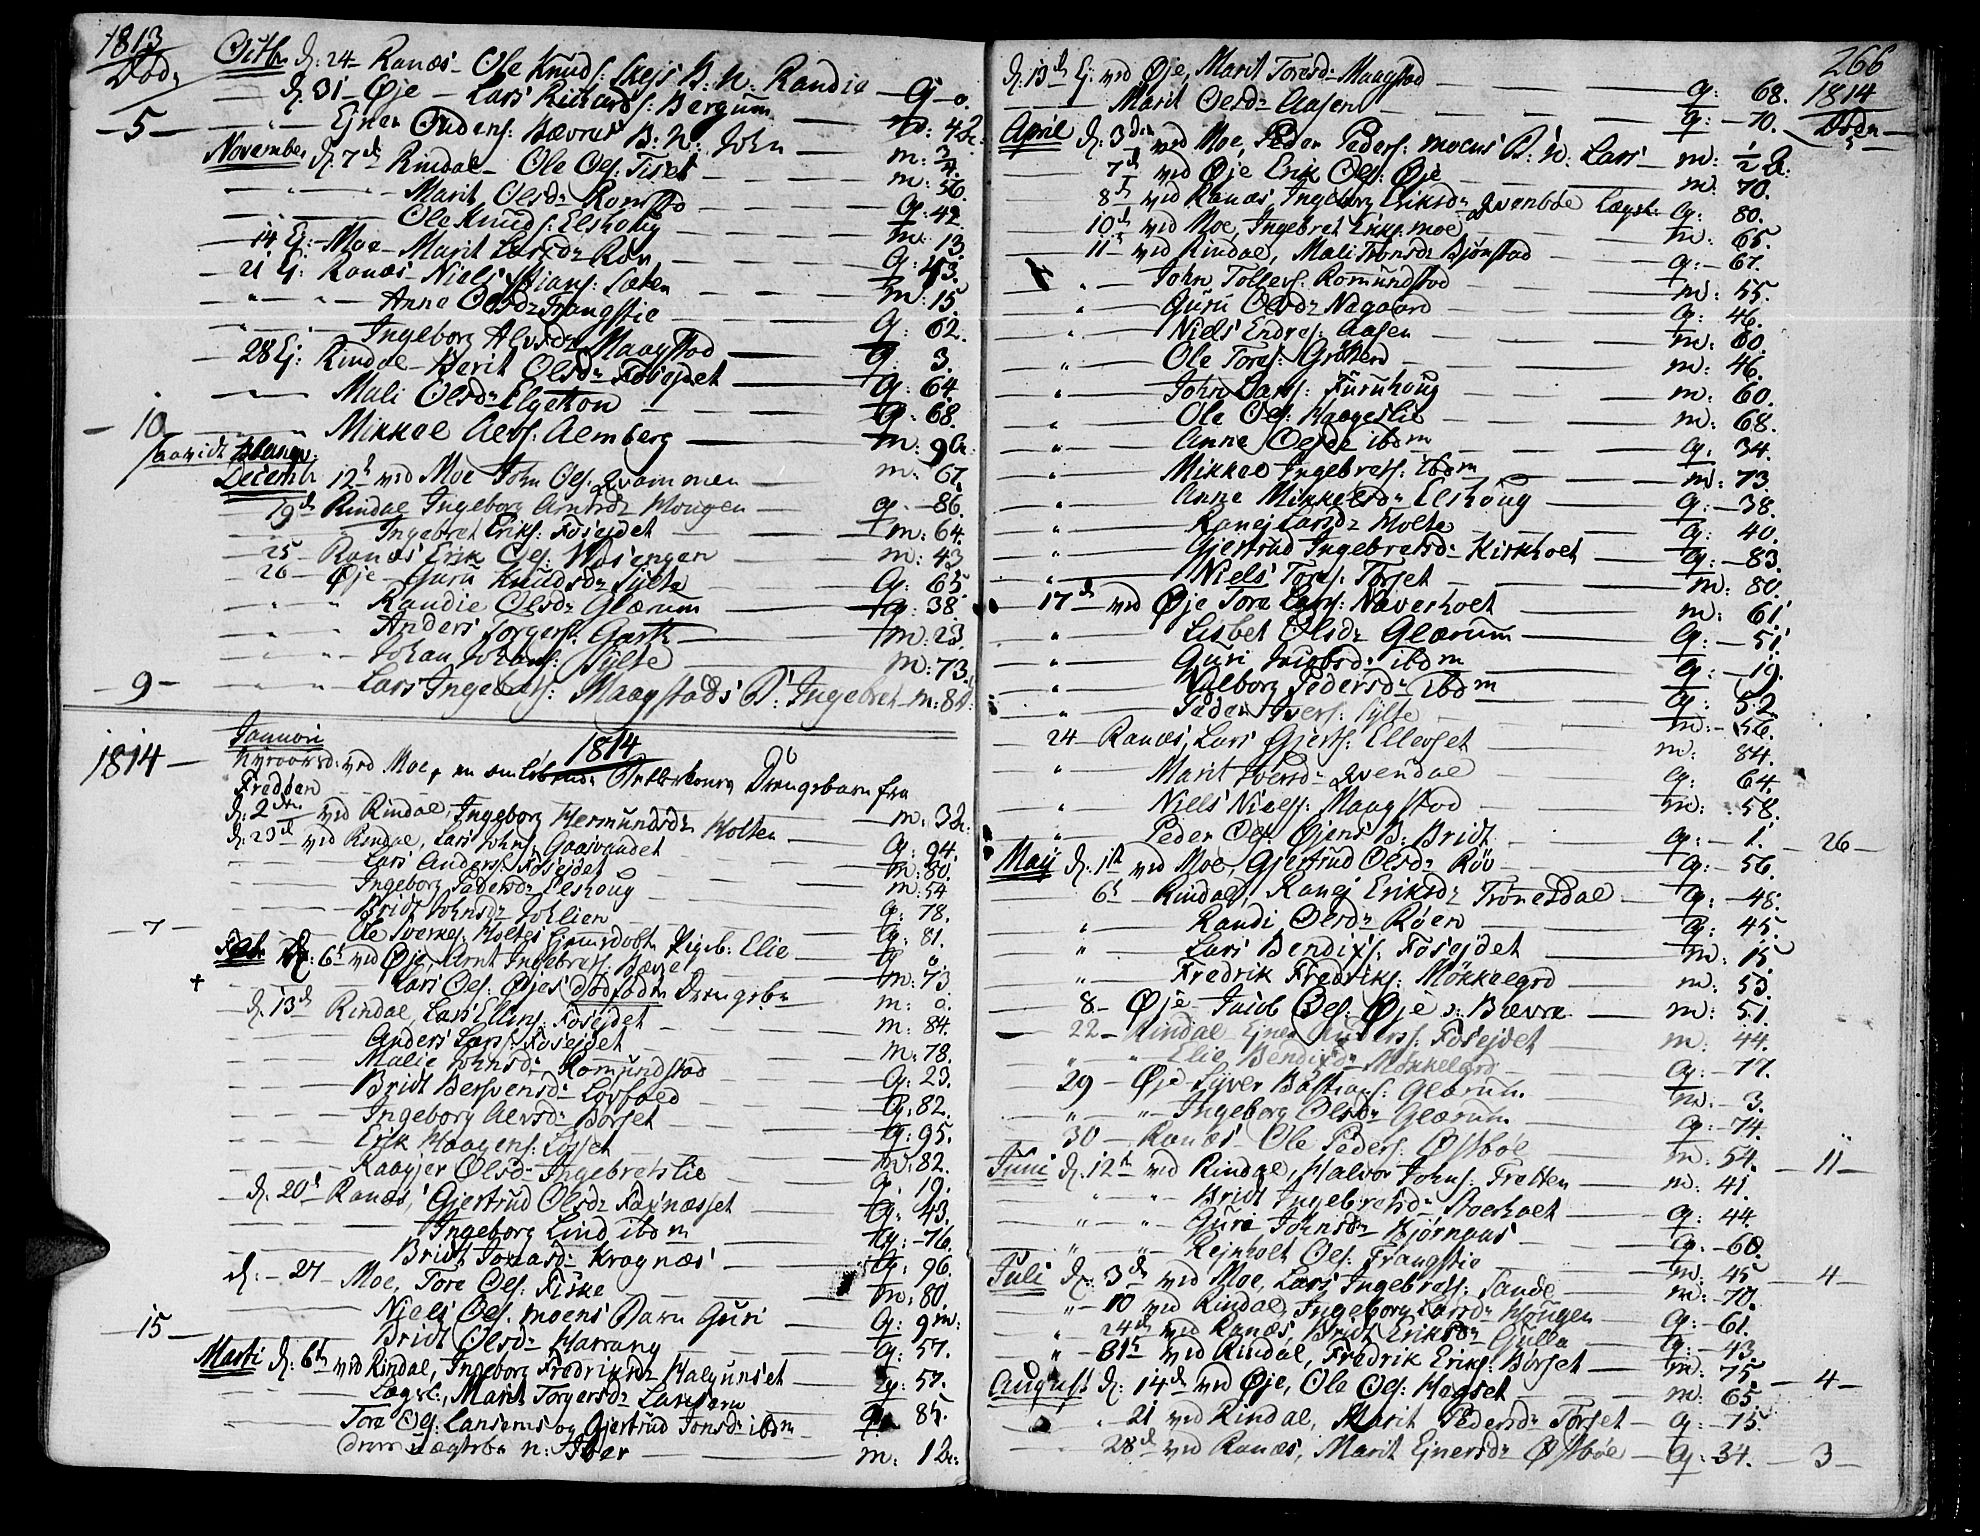 1813
Død.
Octbr d: 24 Ranæs - Ole Knuds: Skejs B: N: Randie — q — 0.
d: 31 - Øje - Lars Bergum — m: 42
— 5 — Ejner Endens: Bævres B: N: John — m: 3/4.
November d: 7de Rindal - Ole Ols: Tiset — m: 56.
Marit Olsdr Romstad — q: 42.
Ole Knuds: Elshoug — m: 13.
14 Ej: Moe - Marit Larsdr Røv — q: 43.
21 Ej: Ranæs - Niels Stians: Sæter — m: 15.
Anne Olsdr Frangstie — q: 62.
Ingeborg Alvsdr Maagstad — q: 3.
28 Ej: Rindal - Berit Olsdr Fosejdet — q: 64.
Mali Olsdr Elgetton — q: 68.
— 10 — Mikkel Aevs: Aemberg — m: 9
Decembr 12te ved Moe John Ols. Qvammen — m: 67.
19de Rindal Ingeborg Arntsdr Hougen — q: 86.
Ingebret Eriks: Fosejdet — m: 64.
25 - Ranæs Erik Ols: — m: 43
26 - Øje - Guru Knudsdr Sylte — q: 65.
Randie Olsdr Glærum — q: 38.
Anders Torgers: Garte — m: 23.
Johan Johans: Sylte — m: 73.
— 9 — Lars Ingebrs: Maagstads B: Ingebret m: 8
Januari
1814
1814 — Nyeaarsd: ved Moe, Drengebarn fra
Fredden — m: 3
d: 2den ved Rindal, Ingeborg Hermundsdr Holten — q: 94.
d: 23de ved Rindal, Lars Johns: Gaasvandet — m: 80.
Lars Anders: Fosejdet — m: 54
Ingeborg Pedersdr Elshoug — q: 78.
Bridt Johnsdr Johlien — q: 81.
— 7 — Ole Sverkes: Holtes hjemmedøbte Pigeb: Elie — q 0.
Febr d: 6te ved Øje, Arnt Ingebrets: Bævre — m: 73
Lars Ols. Øjes dødfødte Drengebn — m: 0.
d. 13de Rindal, Lars Ellings: Fosejdet — m: 84.
Anders Lars: Fosejdet — m: 78.
Malie Johnsdr Romundstad — q: 23.
Bridt Bersvensdr Løvfald — q: 82.
Ingeborg Alvsdr Børset — q: 95.
Erik Haagens: Løset — m: 82.
Raagjer Olsdr Ingebretslie — q. 19.
d. 20de Ranæs, Gjertrud Olsdr Faxnæsset — q. 43.
Ingeborg Lind ibdm — q: 76.
Bridt Toresdr Kragnæs — q: 96.
d: 27 - Moe, Tore Ols: Fiske — m: 80.
Niels Ols. moens Barn Guri — q: 9 m:
— 15 — Bridt Olsdr Harrang — q: 57.
Marti d: 6te ved Rindal, Ingeborg Fredriksdr Halgunset — q: 57.
Lægsl:, Marit Torgersdr Langsem — q 85.
Tore Ols: Lansems og Gjertrud Jonsdr ibdm
n: Iver — m: 12

266
1814
Døde
d. 13de Ej: ved Øje, Marit Toresdr Maagstad — q: 68.
Marit Olsdr Aasen — q: 70.
April d: 3den ved Moe, Peder Peders: moens B: N. Lars — m: 1/2
7de ved Øje Erik Ols: Øje — m: 70.
8de ved Ranæs, Ingeborg Eriksdr Qvenbøe Lægsl: q: 80.
10de ved Moe, Ingebret Eriks. moe — m: 65.
11te ved Rindal, Mali Tronsdr Bjørstad — q: 67.
John Tollevs: Romundstad — m: 55.
Guru Olsdr Negaard — q: 46.
Niels Endres: Aasen — m: 60.
Ole Tores: Grøten — m: 46.
John Lars: Furuhoug — m: 60.
Ole Ols: Haagetlie — m: 68.
Anne Olsdr ibdm — q: 34.
Mikkel Ingebrets: ibdm — m: 73.
Anne Mikkelsdr Elshoug — q: 38.
Ranej Larsdr Holte — q: 40.
Gjertrud Ingebretsdr Kirkhoet — q: 83.
Niels Tores: Torset — m: 80.
17de ved Øje Tore Lars: Næverholt — m: 61.
Lisbet Olsdr Glærum — q: 51.
Guri Jacobsdr ibdm — q: 19.
Valborg Pedersdr ibdm — q: 52.
Peder Ivers: Sylte — m: 56.
24 Ranæs, Lars Gjerts: Ellevset — m: 84.
Marit Iversdr Qvendal — q: 64.
Niels Niels: Maagstad — m: 58.
Peder Ols: Øjens B: Bridt — q: 1. — 26 —
Maij d: 1ste ved Moe, Gjertrud Olsdr Røv — q: 56.
6te Rindal, Ranej Eriksdr Trønesdal — q: 48.
Randi Olsdr Røen — q: 45.
Lars Bendixs: Fosejdet — m: 15
Fredrik Fredriks: Møkkelgrd — m: 53.
8 - Øje - Jacob Ols. Øje s: Bævra — m: 51.
22 - Rindal Ejner Anders: Fosejdet — m: 44.
Elie Bendixdr Møkkelgrd — q: 77.
29 - Øje Syver Bastians: Glærum — m: 3.
Ingeborg Olsdr Glærum — q: 74.
30 - Ranæs - Ole Peders: Østbøe — m: 54. — 11 —
Juni d: 12te ved Rindal, Halvor Johns: Fratten — m: 41.
Bridt Ingebretsdr Stoerhoet — q: 44.
Gura Johnsdr Bjørnaas — q: 60.
Rejnholt Ols. Frangstie — m: 45 — 4 —
Juli d: 3de ved Moe, Lars Ingebrets: Sande — m: 70.
10 ved Rindal, Ingeborg Larsdr Hougen — q: 61.
24de ved Ranæs, Bridt Eriksdr Gulla — q: 43.
31te ved Rindal, Fredrik Eriks. Børset — m: 75. — 4 —
August d: 14de ved Øje, Ole Ols: Hogset — m: 65.
21 ved Rindal, Marit Pedersdr Torset — q: 75.
28de ved Ranæs, Marit Ejnersdr Østbøe — q: 34. — 3 —